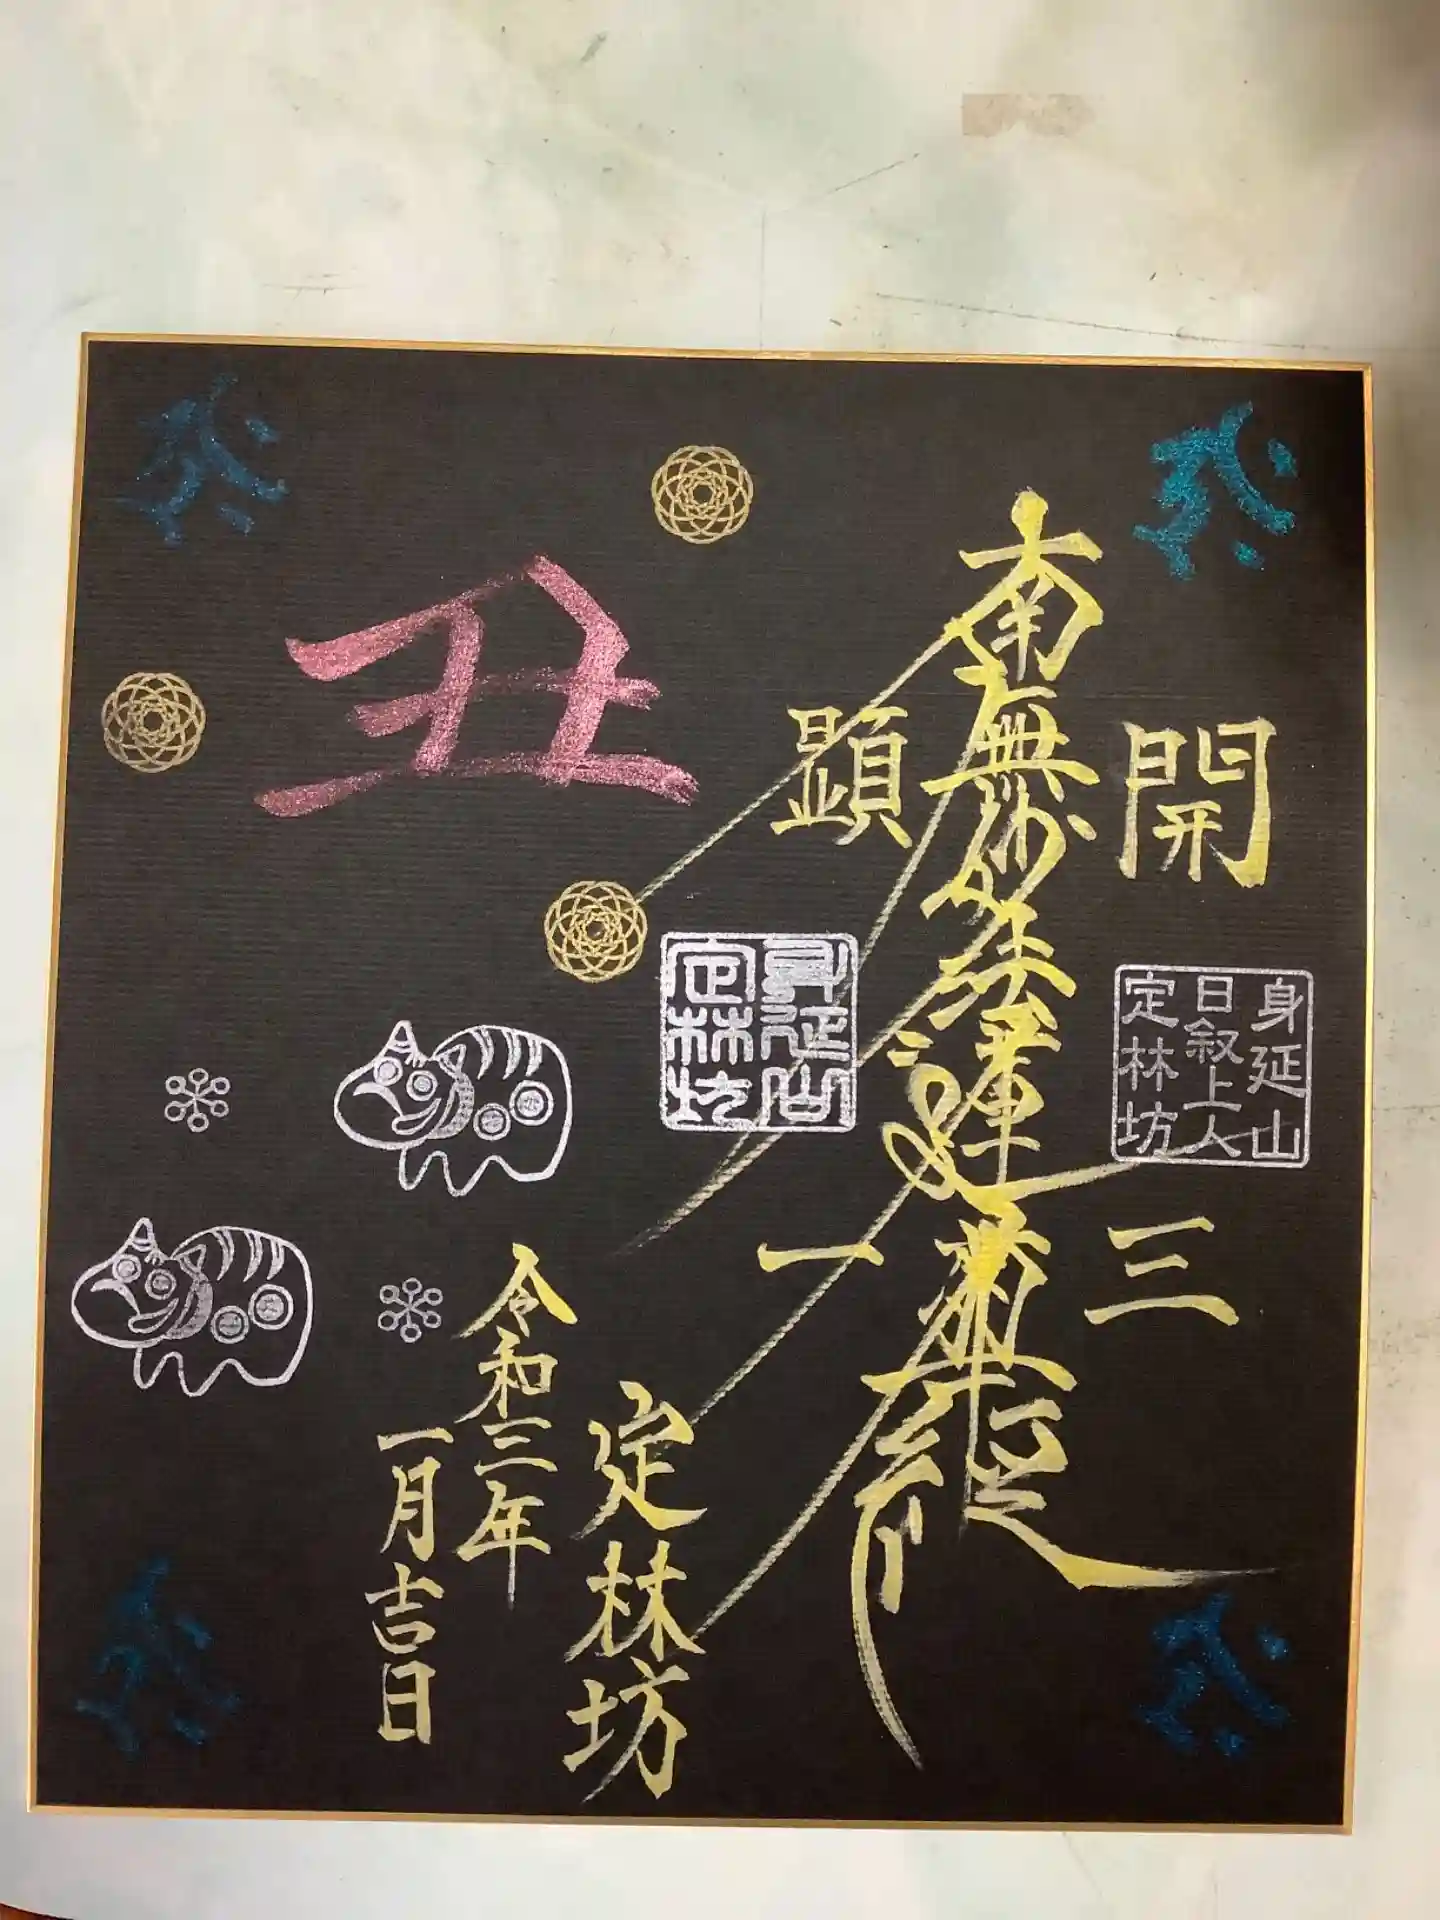 開
三
身延山
日叙上人
定林坊
南無妙法蓮華経
顕
一
身延山
定林坊
丑
定林坊
令和三年
一月吉日